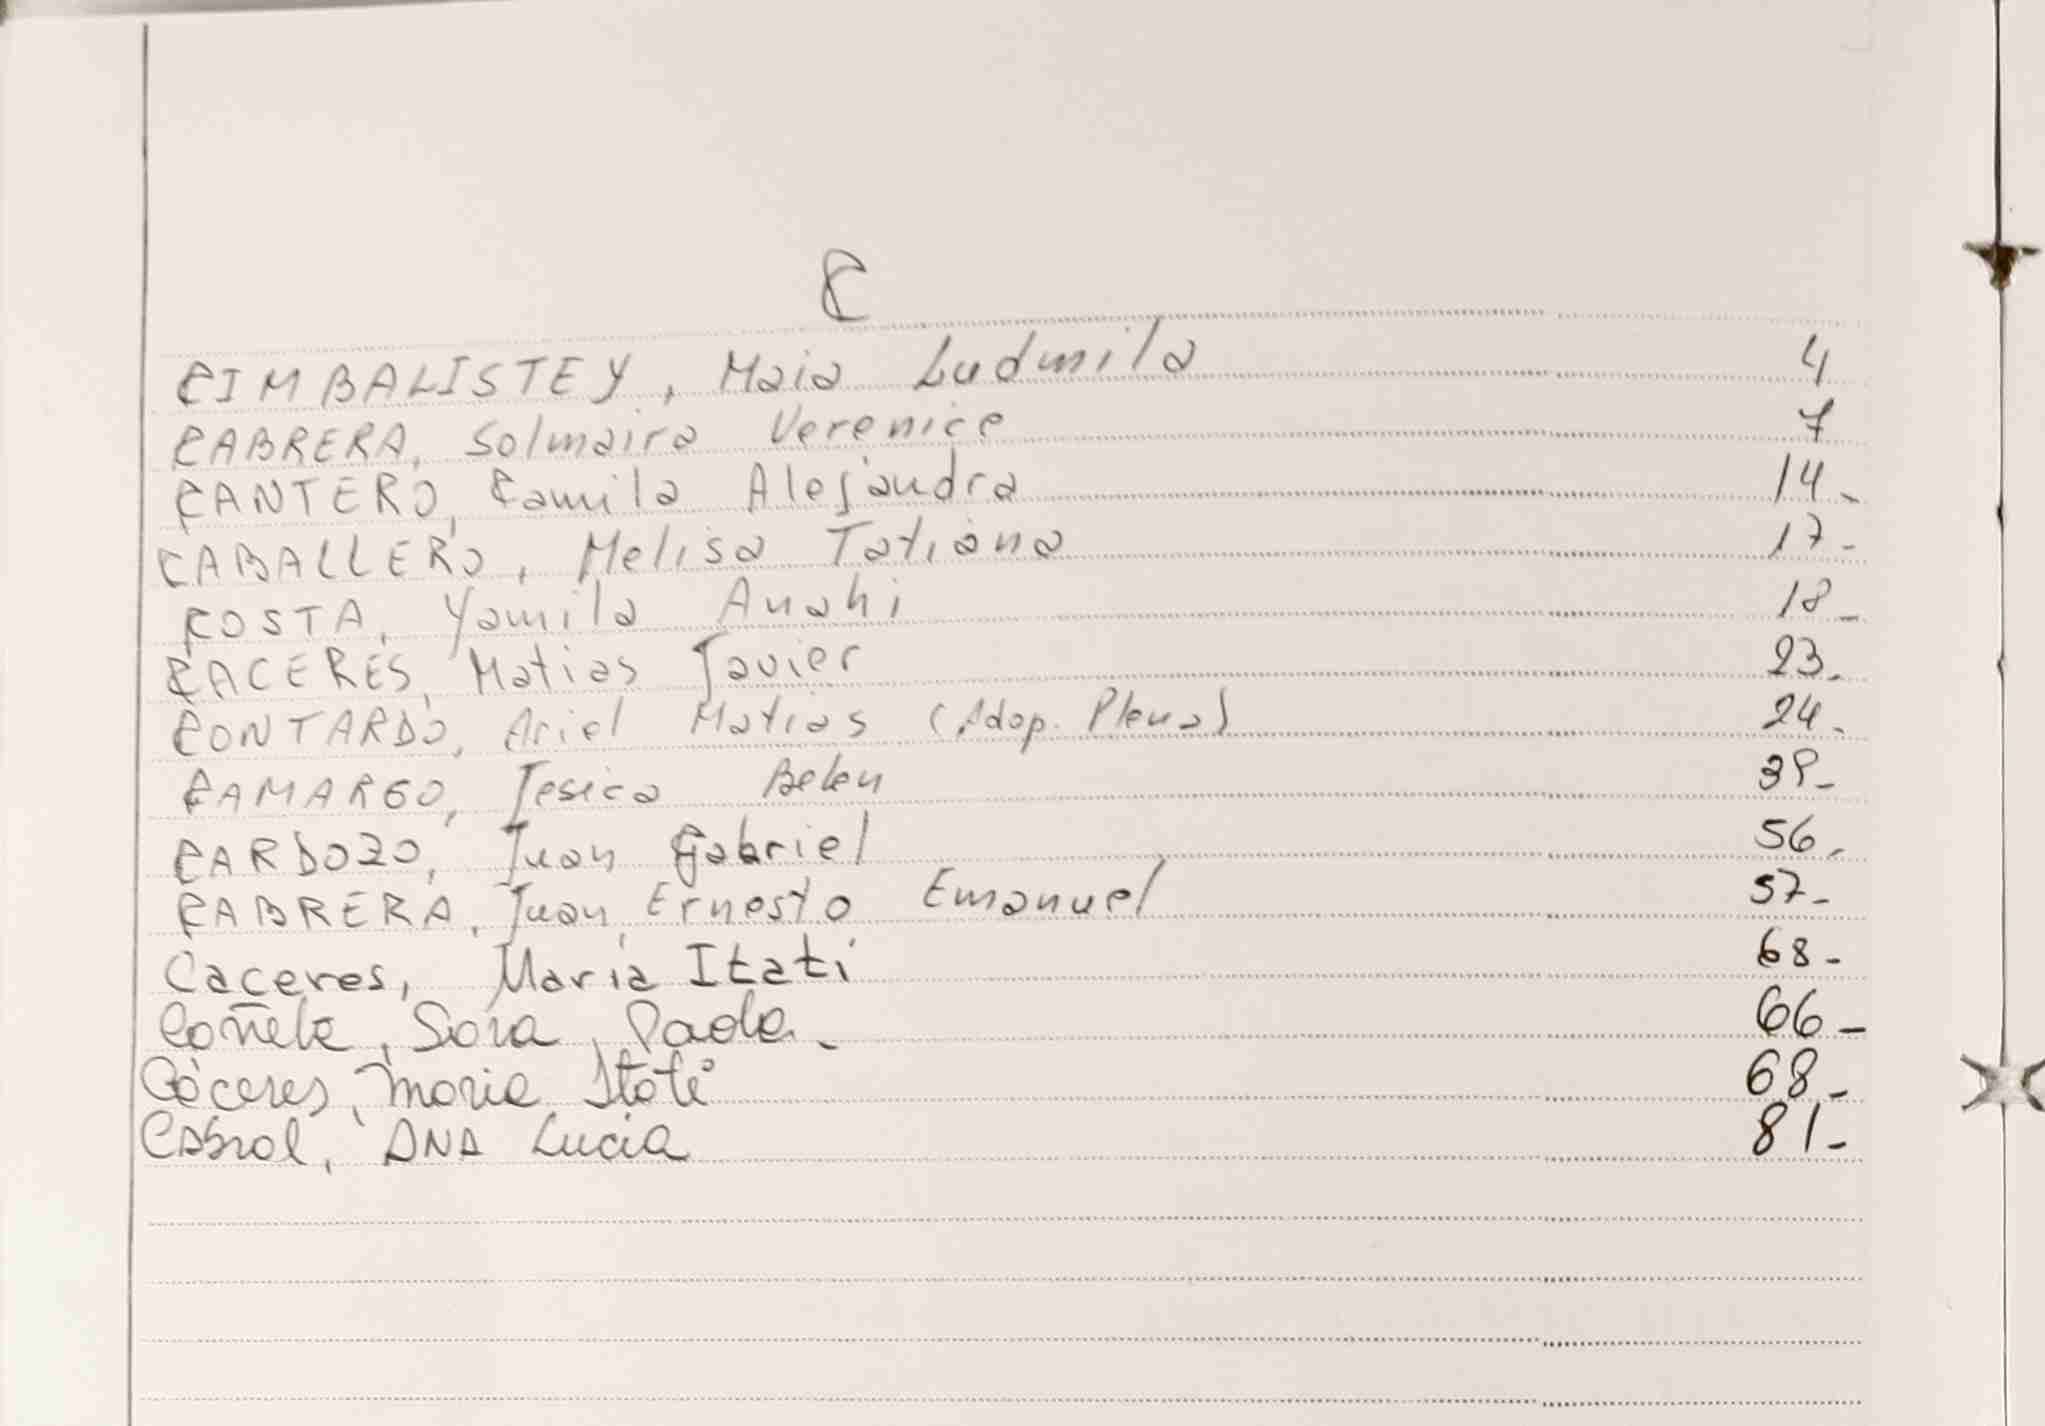 C
CIMBALISTEY, Maia Ludmila 4
CABRERA, Solmaira Verenice 7
CANTERO, Camila Alejandra 14-
CABALLERO, Melisa Tatiana 17-
COSTA, Yamila Anahi 18-
CACERES, Matias Javier 23-
CONTARDO, Ariel Matias (Adop. Plena) 24-
CAMARGO, Jesica Belen 39-
CARDOZO, Juan Gabriel 56-
CABRERA, Juan Ernesto Emanuel 57-
Caceres, Maria Itati 68-
Cañete, Sara Paola- 66-
Cáceres, Maria Itati 68-
Cabral, ANA Lucia 81-